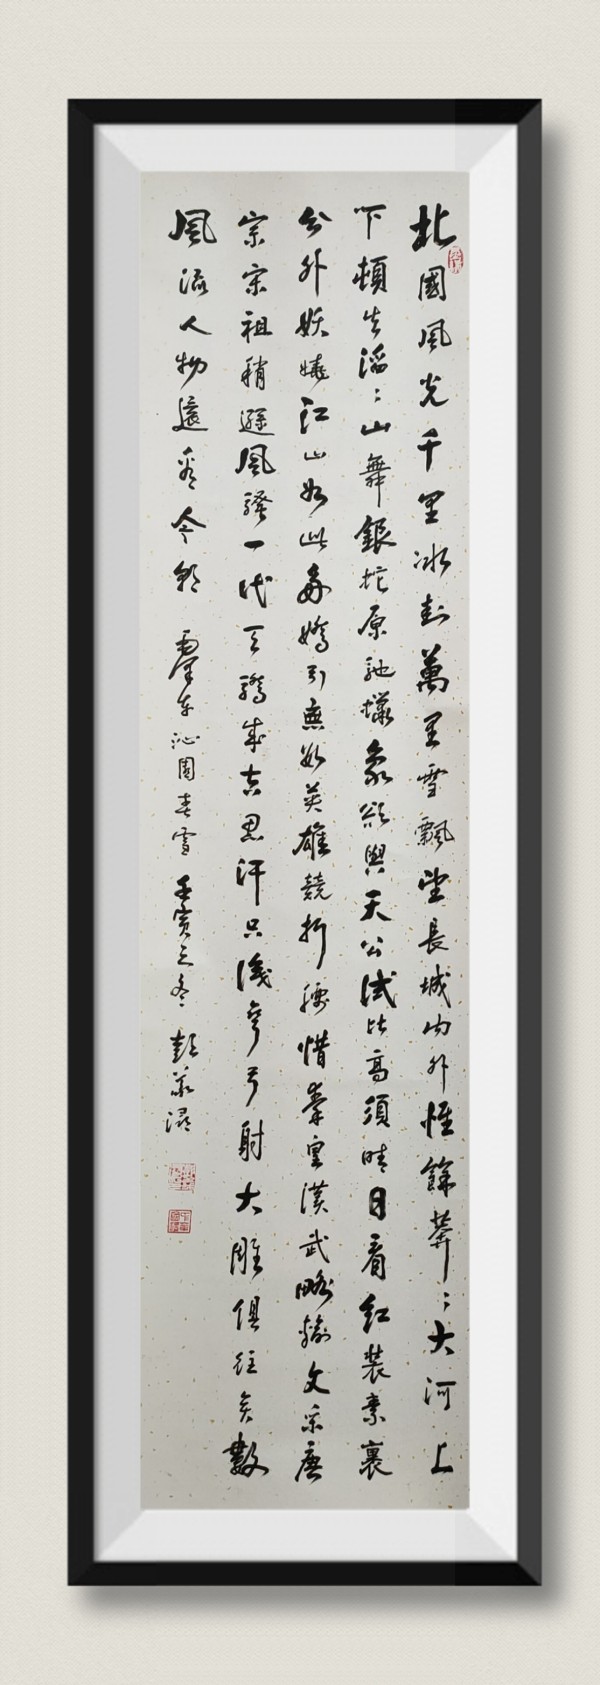 北國風光千里冰封萬里雪飄望長城内外惟餘莽〻大河上
下頓失滔〻山舞銀蛇原馳蠟象欲與天公試比高須晴日看紅裝素裹
分外妖嬈江山如此多嬌引無數英雄競折腰惜秦皇漢武略輸文采唐
宗宋祖稍遜風騷一代天驕成吉思汗只識彎弓射大雕俱往矣數
風流人物還看今朝 澤東沁園春雪 壬寅之冬 彭